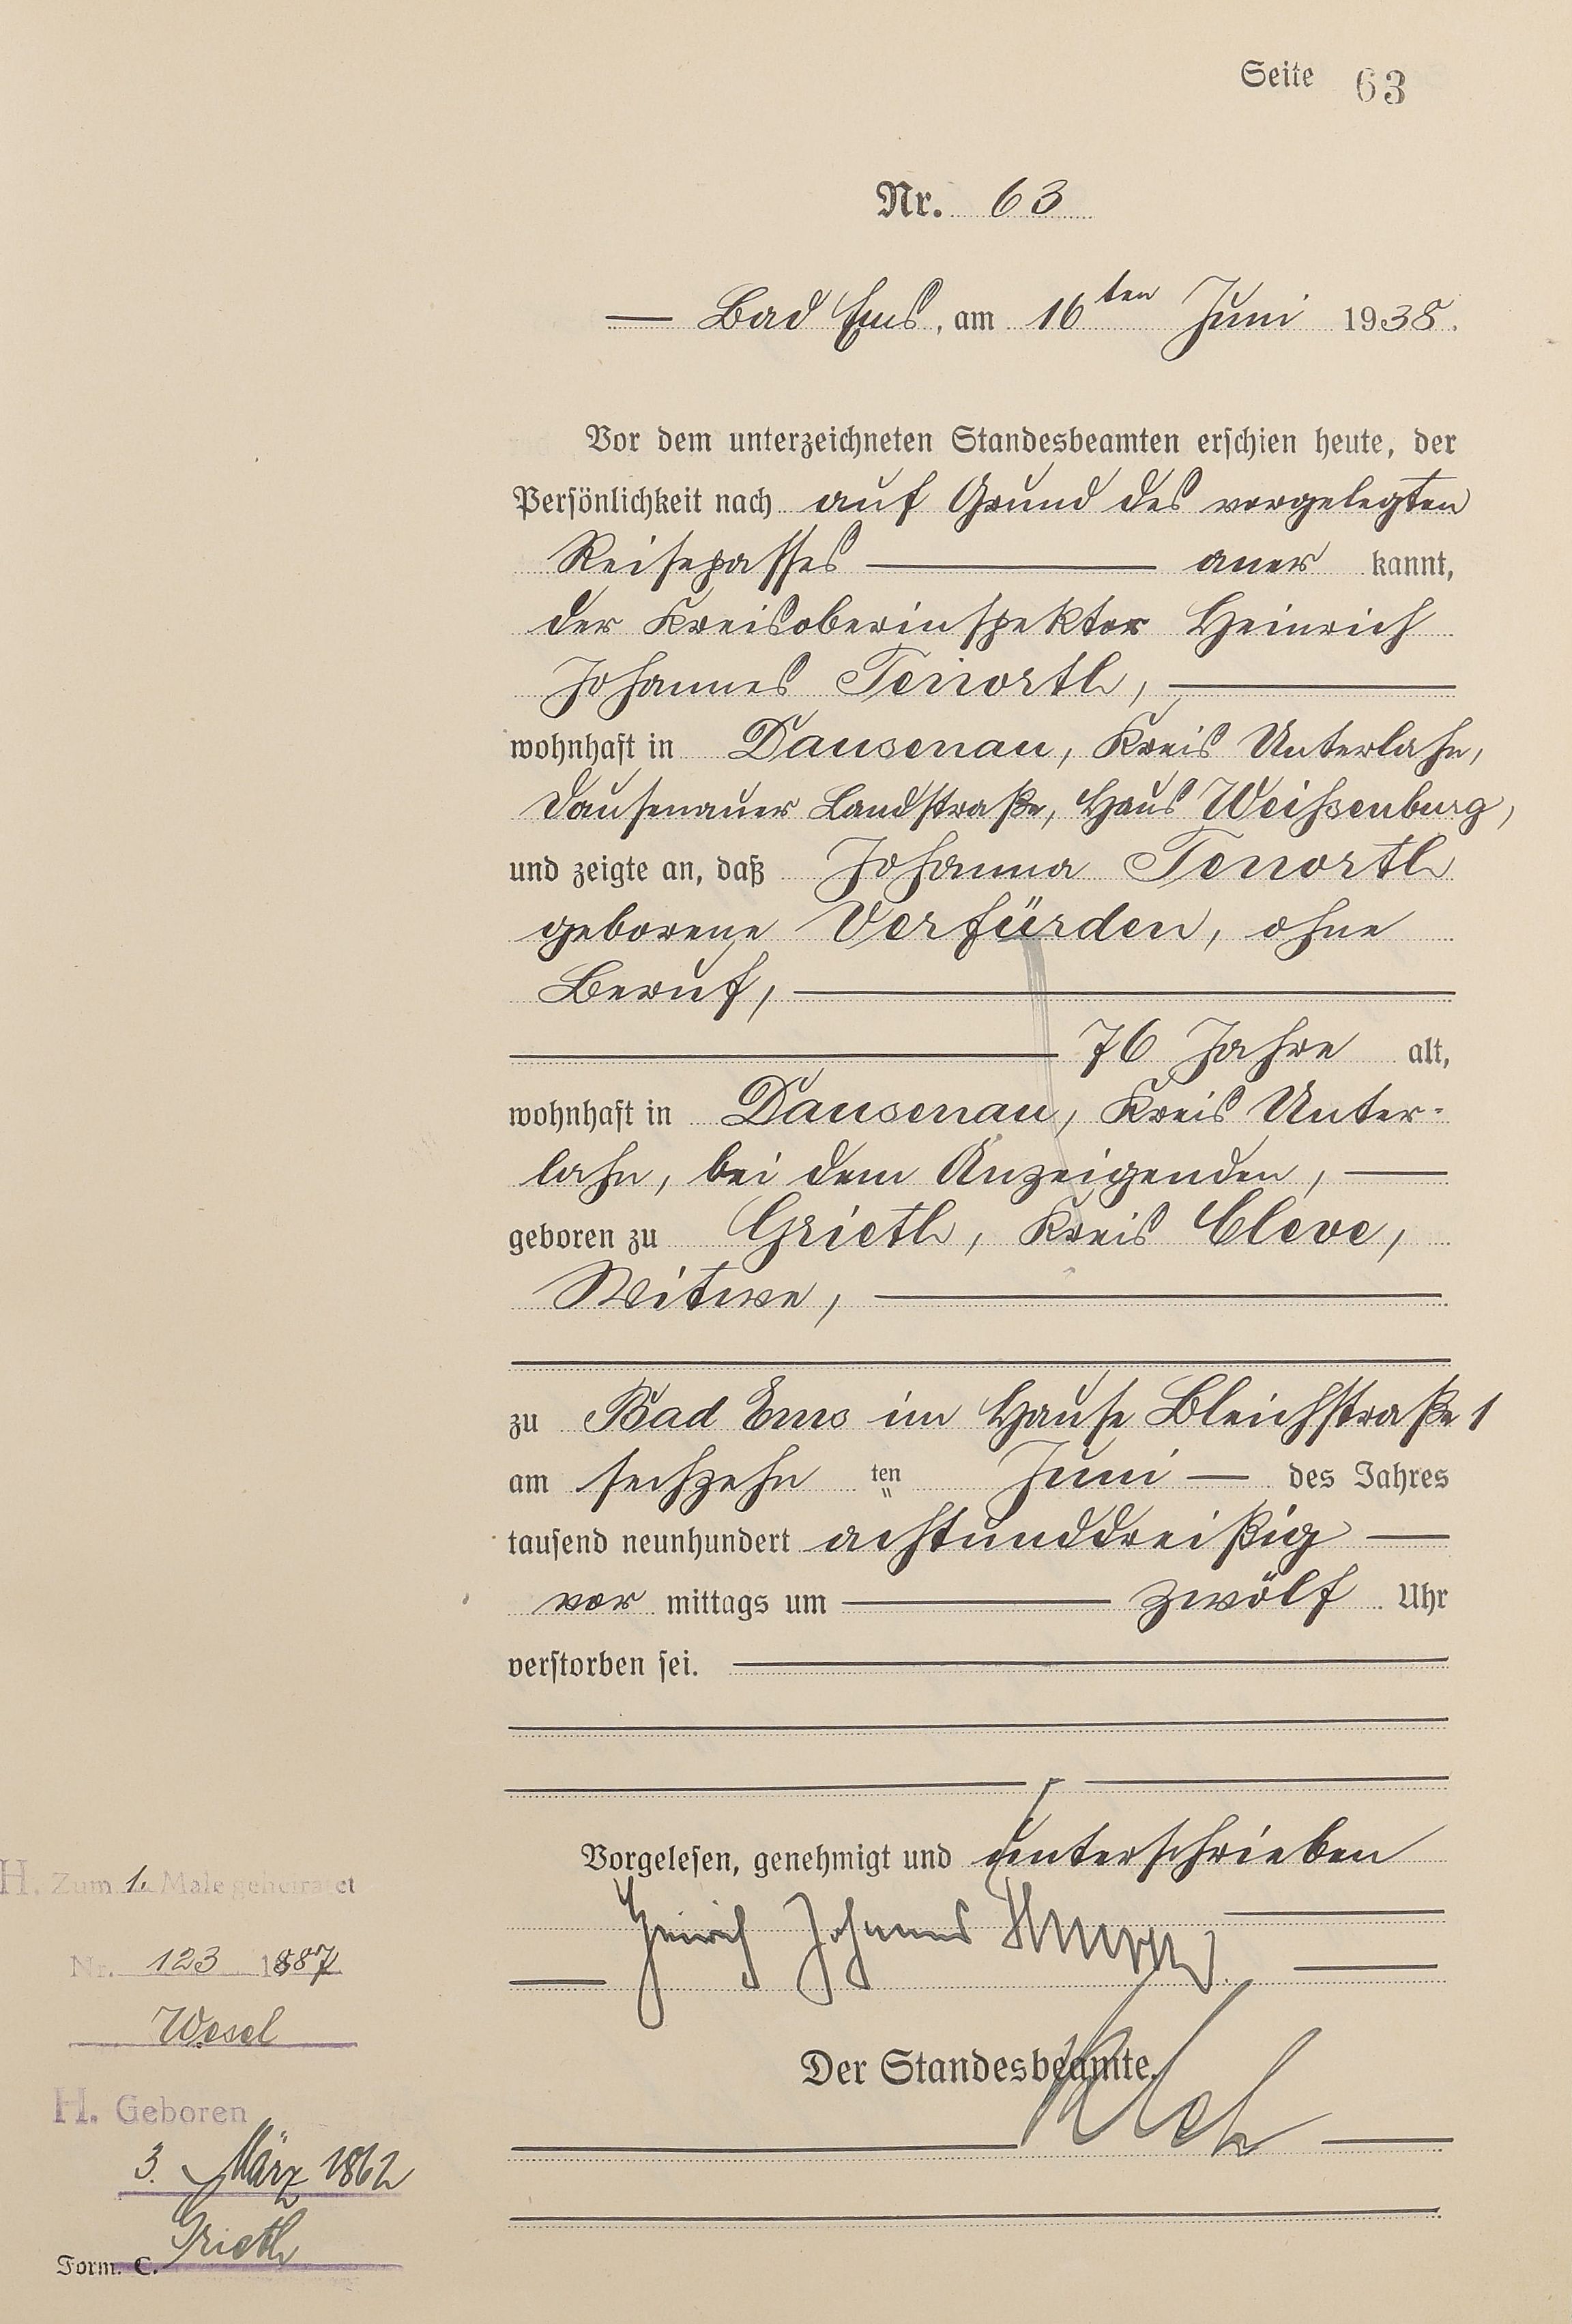 Seite 63
Nr. 63
Bad Ems, am 16ten Juni 1938.
Vor dem unterzeichneten Standesbeamten erschien heute, der
Persönlichkeit nach auf Grund des vorgelegten
Reisepasses aner kannt,
der Kreisoberinspektor Heinrich
Johannes Tenorth,
wohnhaft in Dausenau, Kreis Unterlahn,
Dausenauer Landstraße, Haus Weissenburg,
und zeigte an, daß Johanna Tenorth
geborene Verfürden, ohne
Beruf,
76 Jahre alt,
wohnhaft in Dausenau, Kreis Unter-
lahn, bei dem Anzeigenden,
geboren zu Grieth, Kreis Cleve,
Witwe,
zu Bad Ems im Hause Bleichstraße 1
am sechzehn ten Juni des Jahres
tausend neunhundert achtunddreißig
vor mittags um zwölf Uhr
verstorben sei.
Vorgelesen, genehmigt und unterschrieben
Heinrich Johannes
Der Standesbeamte.
H. Zum 1. Male geheiratet
Nr. 123 1887
Wesel
H. Geboren
3. März 1862
Grieth
Form. C.